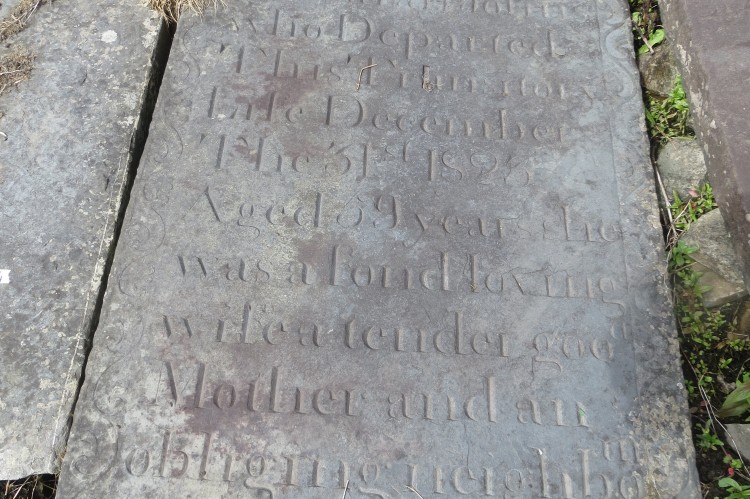 who Departed
This Transitory
Life December
The 31st 1825
Aged 59 years she
was a fond loving
wife a tender good
Mother and an
obliging neighbo